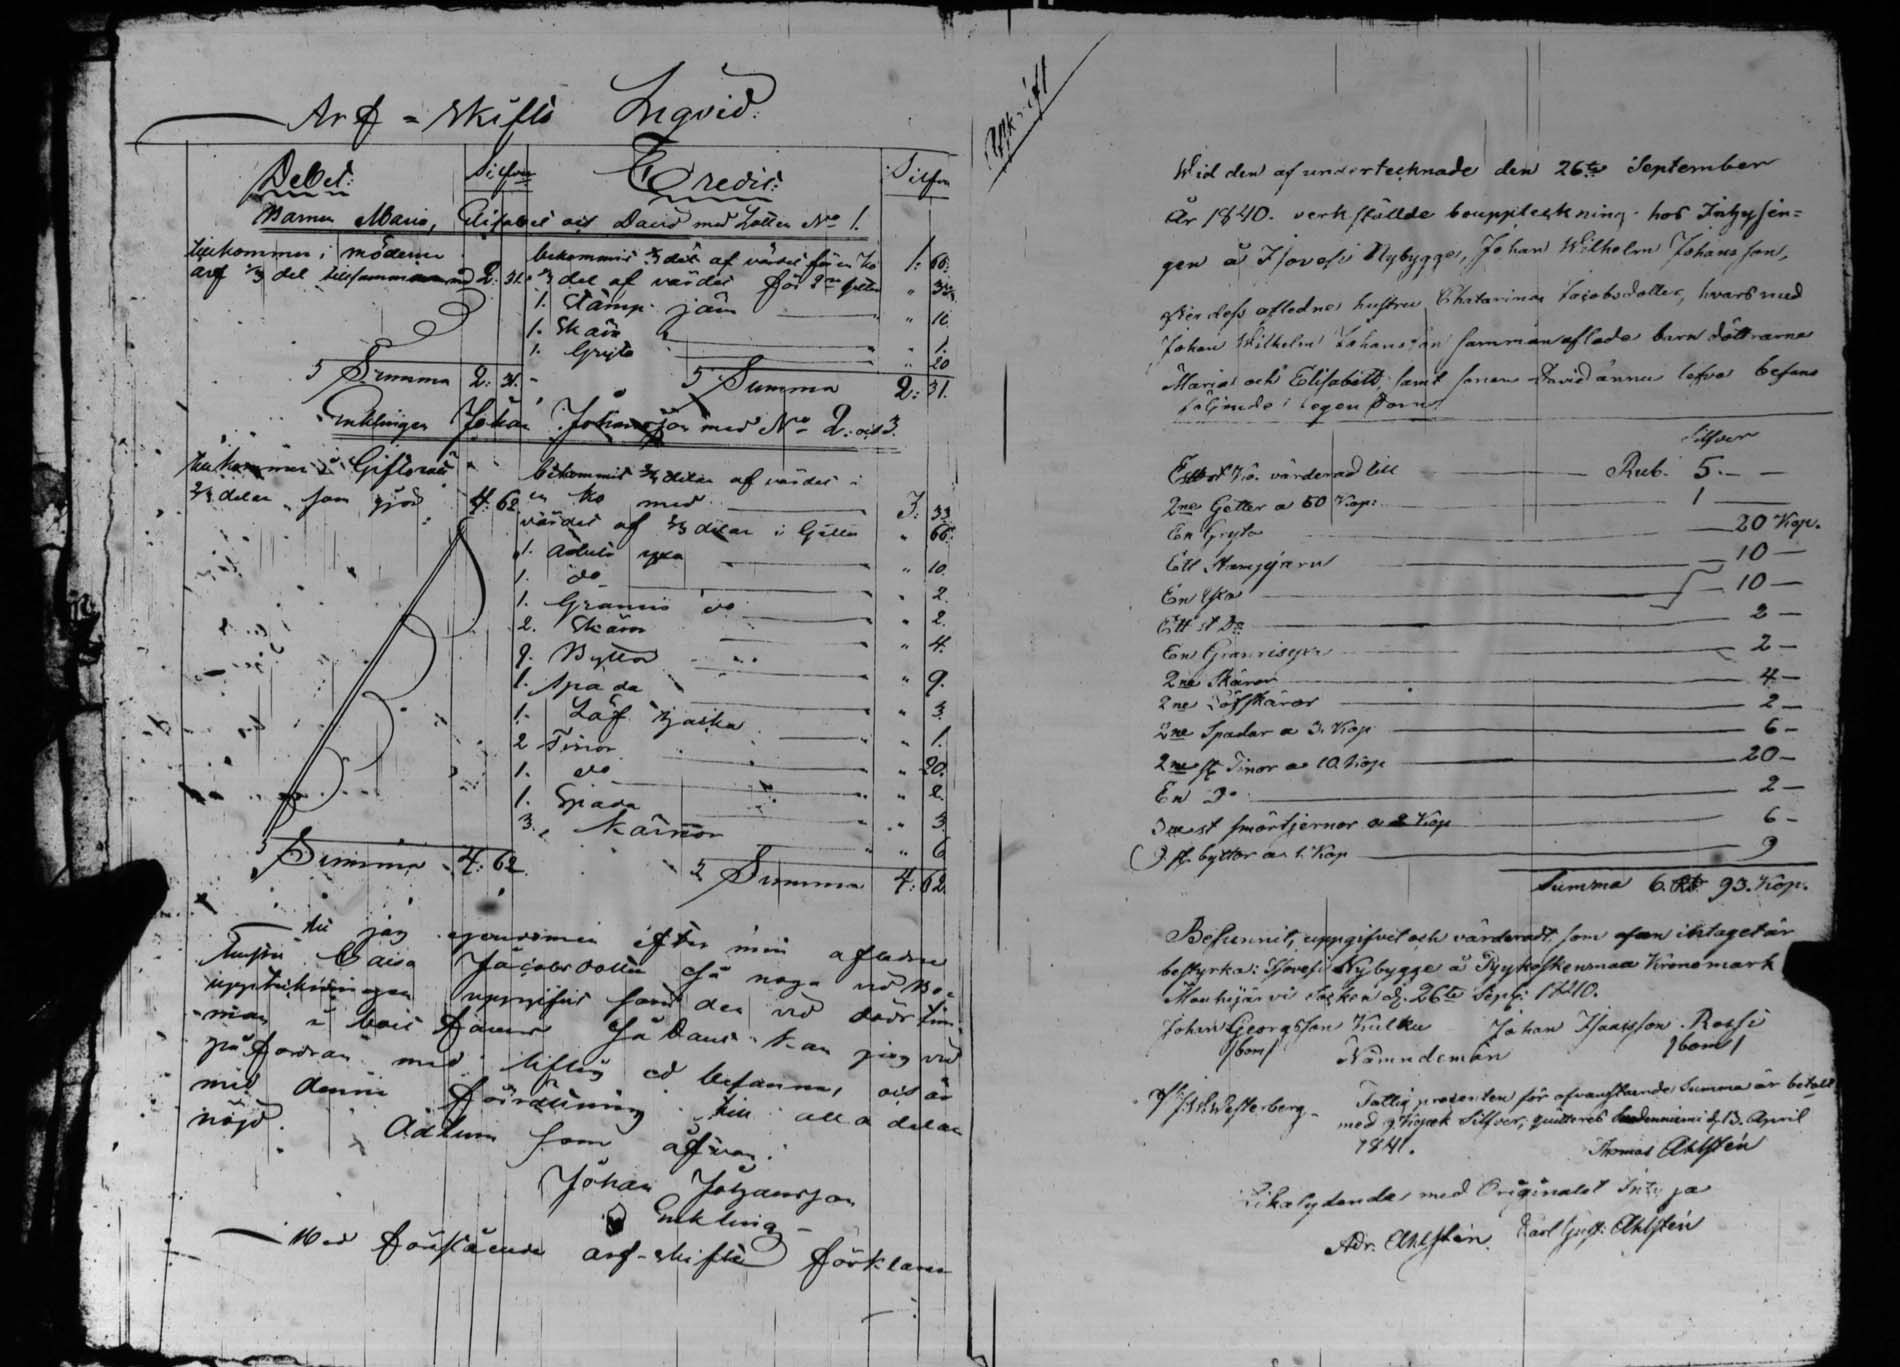 Arf = Skifts Liqvid.
Debet: Silfver Credit: Silfver
Barnen Maria, Elisabet och David med Lotten No 1.
tillkommer i möderne bekommit 1/3 del af värdet för en Ko 1: 66.
arf 1/3 del tillsammans 2: 31. 1/3 del af värdet för 2ne Getter " 33 1/3
1. Stamp järn " 10.
1. Skära " 1.
1. Gryta " 20
Summa 2: 31. Summa 2: 31.
Enklingen Johan Johansson med No 2. och 3.
tillkommer i Giftorätt bekommit 2/3 delar af värdet i
2/3 delar som gör 4: 62 en Ko med 3: 33
värdet af 2/3 delar i Getter " 66.
1. yxa " 10.
1. do " 2.
1. Granris do " 2.
2. Skäror " 4.
9. Byttor " 9.
1. Spada " 3.
1. Löf skära " 1.
2 Tinor " 20.
1. do " 2.
1. Spada " 3.
3. Kärnor " 6
Summa 4: 62. Summa 4: 62.
jag egendomen efter min aflidne
hustru Caisa Jacobsdotter så noga vid Bo=
uppteckningen uppgifvit som den vid döds tim-
man i boet fanns Sådant kan jag vid
påfordran med liflig ed besanna, och är
med denne fördelning till alla delar
nöjd. Datum som ofvan.
Johan Johansson
Enkling
Med förestående arf-skifte förklarar
Afskrift
Wid den af undertecknade den 26te September
År 1840. verkställde bouppteckning hos Inhysin=
gen å Isovesi Nybygge, Johan Wilhelm Johansson,
efter dess afledne hustru Chatarina Jacobsdotter, hvars med
Johan Wilhelm Johansson sammanaflade barn döttrarne
Maria och Elisabett, samt sonen David ännu lefva befans
följande i egendom
Silfver
Ett st Ko. värderad till Rub. 5. —
2ne Getter a 50 Kop: 1 —
En Gryta 20 Kop.
Ett Stampjärn 10 —
En Yxa 10 —
Ett st Do 2 —
En Granrisyxa 2 —
2ne Skäror 4 —
2ne Löfskäror 2 —
2ne Spadar a 3. Kop 6 —
2ne st Tinor a 10. Kop 20 —
En Do 2 —
3ne st smörtjernor a 2 Kop 6 —
9. st. byttor a 1. Kop 9
Summa 6. Rb 93. Kop.
Befunnit, uppgifvet och värderadt som ofvan intaget är
bestyrka: Isovesi Nybygge å Kronomark
Mouhijärvi Socken d. 26te Sept: 1840.
Johan Georgsson Kulku Johan Isaacsson Rossi
/bom/ Nämndemän /bom/
Westerberg – Fattig procenten för ofvanstående Summa är betalt
med 9 Kopek Silfver, quitteres d. 13. April
1841. Thomas Ahlstén
Lika lydande med Originalet Intyga
Adr. Ahlstén. Carl Gust. Ahlstén